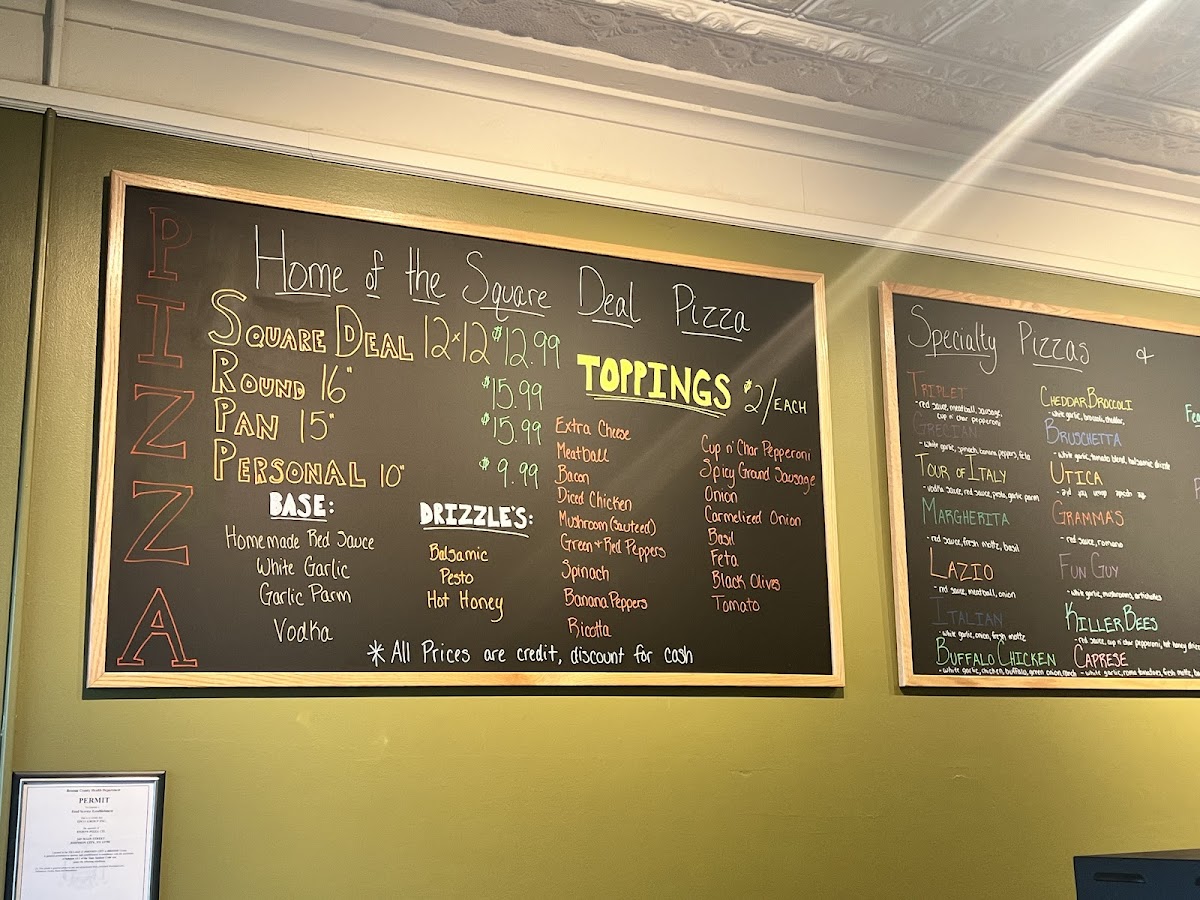 PIZZA
Home of the Square Deal Pizza
SQUARE DEAL 12x12 $12.99
ROUND 16" $15.99
PAN 15" $15.99
PERSONAL 10" $9.99
BASE:
Homemade Red Sauce
White Garlic
Garlic Parm
Vodka
DRIZZLE'S:
Balsamic
Pesto
Hot Honey
TOPPINGS $2/EACH
Extra Cheese
Meatball
Bacon
Diced Chicken
Mushroom (Sauteed)
Green + Red Peppers
Spinach
Banana Peppers
Ricotta
Cup n' Char Pepperoni
Spicy Ground Sausage
Onion
Carmelized Onion
Basil
Feta
Black Olives
Tomato
* All Prices are credit, discount for cash
Specialty Pizzas &
TRIPLET
- red sauce, meatball, sausage,
cup n' char pepperoni
GRECIAN
- white garlic, spinach, banana peppers, feta
TOUR OF ITALY
- vodka sauce, red sauce, pesto, garlic parm
MARGHERITA
- red sauce, fresh motts, basil
LAZIO
- red sauce, meatball, onion
ITALIAN
- white garlic, onion, fresh motts
BUFFALO CHICKEN
- white garlic, chicken, buffalo, green onion, ranch
CHEDDAR BROCCOLI
- white garlic, broccoli, cheddar,
BRUSCHETTA
- white garlic, tomato blend, balsamic drizzle
UTICA
GRAMMA'S
- red sauce, romano
FUN GUY
- white garlic, mushrooms, artichokes
KILLER BEES
- red sauce, cup n' char pepperoni, hot honey drizzle
CAPRESE
- white garlic, roma tomatoes, fresh motts,
PERMIT